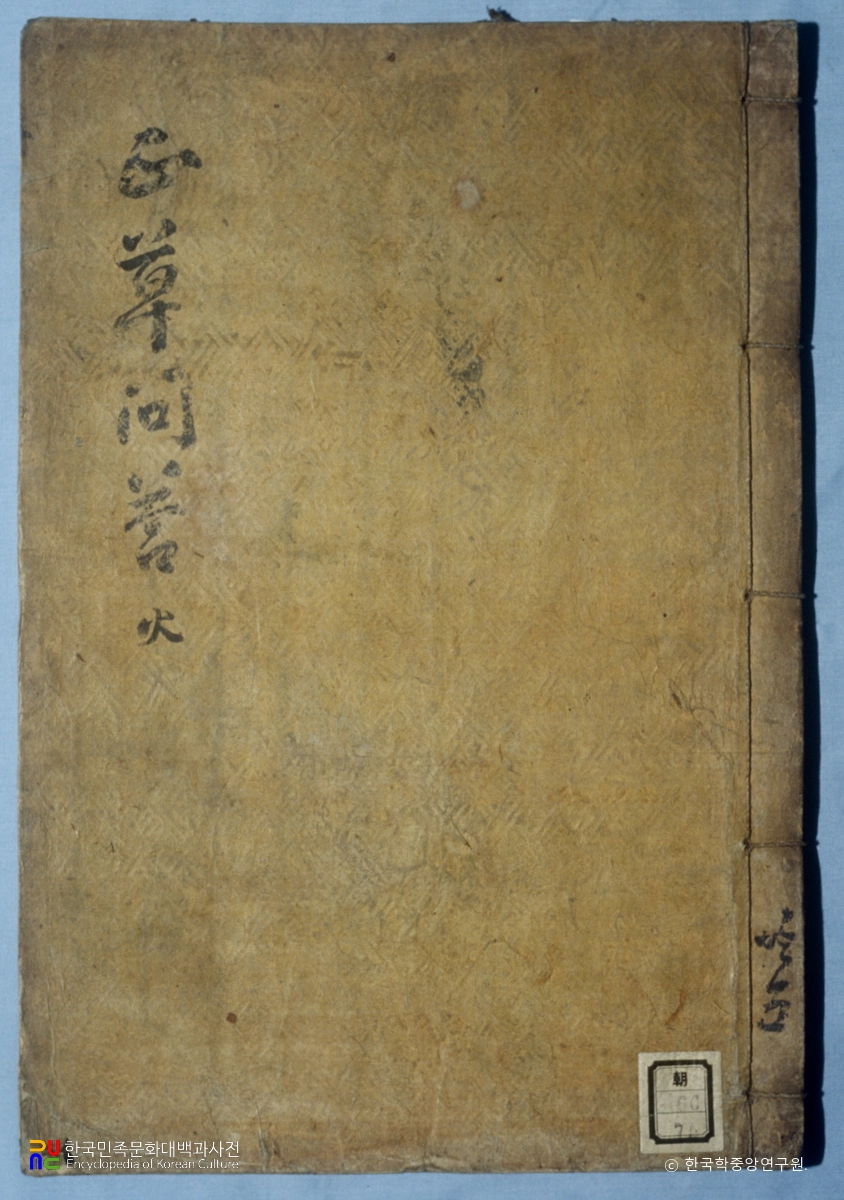 正草問荅 火
共五
朝
한국민족문화대백과사전
Encyclopedia of Korean Culture
© 한국학중앙연구원